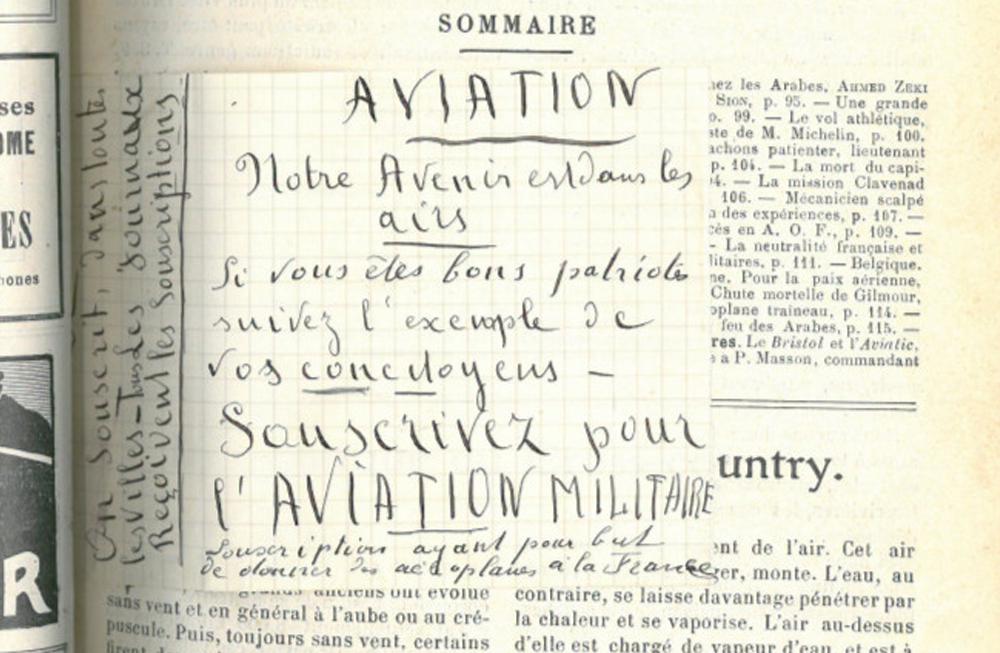 SOMMAIRE
AVIATION
Notre Avenir est dans les
airs
Si vous êtes bons patriots
suivez l'exemple de
vos concitoyens —
Souscrivez pour
l'AVIATION MILITAIRE
Souscription ayant pour but
de donner des aéroplanes à la France
On souscrit, dans toutes
les villes - Tous Les Journaux
Reçoivent les Souscriptions
ses
OME
ES
hones
R
nez les Arabes, AHMED ZEKI
SION, p. 95. — Une grande
p. 99. — Le vol athlétique,
ste de M. Michelin, p. 100.
achons patienter, lieutenant
p. 104. — La mort du capi-
4. — La mission Clavenad
106. — Mécanicien scalpé
des expériences, p. 107. —
cés en A. O. F., p. 109. —
- La neutralité française et
litaires, p. 111. — Belgique.
ne. Pour la paix aérienne,
Chute mortelle de Gilmour,
oplane traîneau, p. 114. —
feu des Arabes, p. 115. —
res. Le Bristol et l'Aviatic,
à P. Masson, commandant
untry.
grands anciens ont évolué
sans vent et en général à l'aube ou au cré-
puscule. Puis, toujours sans vent, certains
ent de l'air. Cet air
ger, monte. L'eau, au
contraire, se laisse davantage pénétrer par
la chaleur et se vaporise. L'air au-dessus
d'elle est chargé de vapeur d'eau, et est à